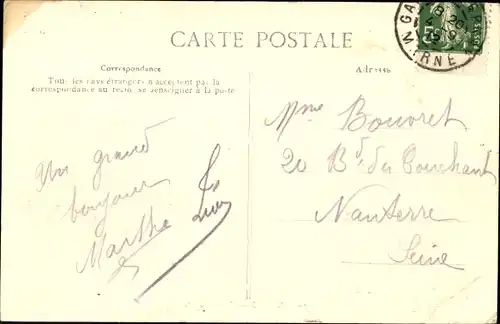 CARTE POSTALE
Correspondance
Tous les pays étrangers n'acceptent pas la
correspondance au recto, se renseigner à la poste
Adresse
Un grand
bonjour
Marthe
Mme Bouvret
20 Bd du Couchant
Nanterre
Seine
MARNE